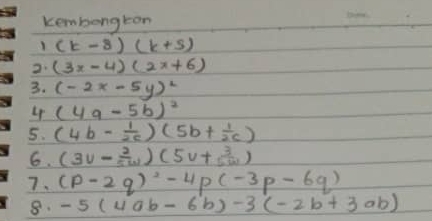 Kembangkan
1 (k - 8) (k + 5)
2. (3x - 4) (2x + 6)
3. (-2x - 5y)²
4 (4a - 5b)²
5. (4b - 1/2c) (5b + 1/2c)
6. (3v - 2/5w) (5v + 3/5w)
7. (p - 2q)² - 4p (-3p - 6q)
8. -5 (4ab - 6b) - 3 (-2b + 3ab)